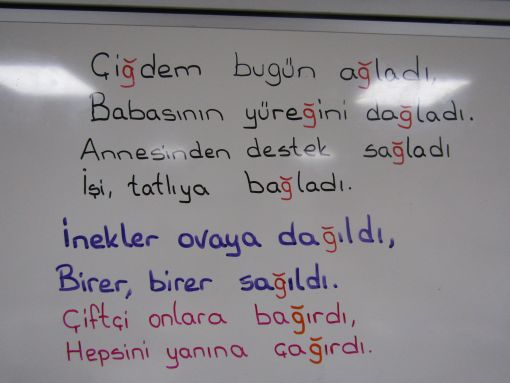 Çiğdem bugün ağladı,
Babasının yüreğini dağladı.
Annesinden destek sağladı
İşi, tatlıya bağladı.
İnekler ovaya dağıldı,
Birer, birer sağıldı.
Çiftçi onlara bağırdı,
Hepsini yanına çağırdı.